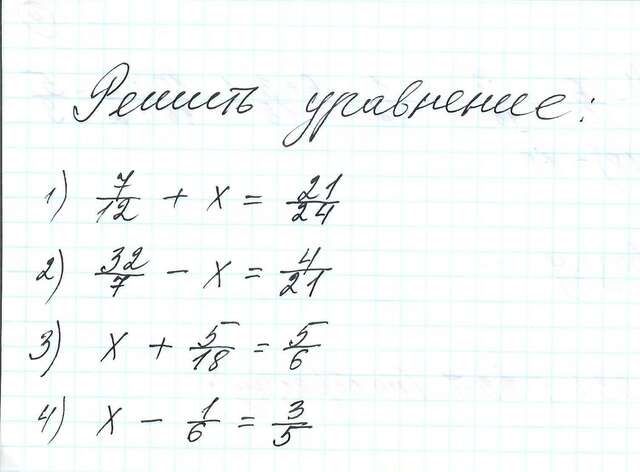 Решить уравнение:
1) 7/12 + x = 21/24
2) 32/7 - x = 4/21
3) x + 5/18 = 5/6
4) x - 1/6 = 3/5